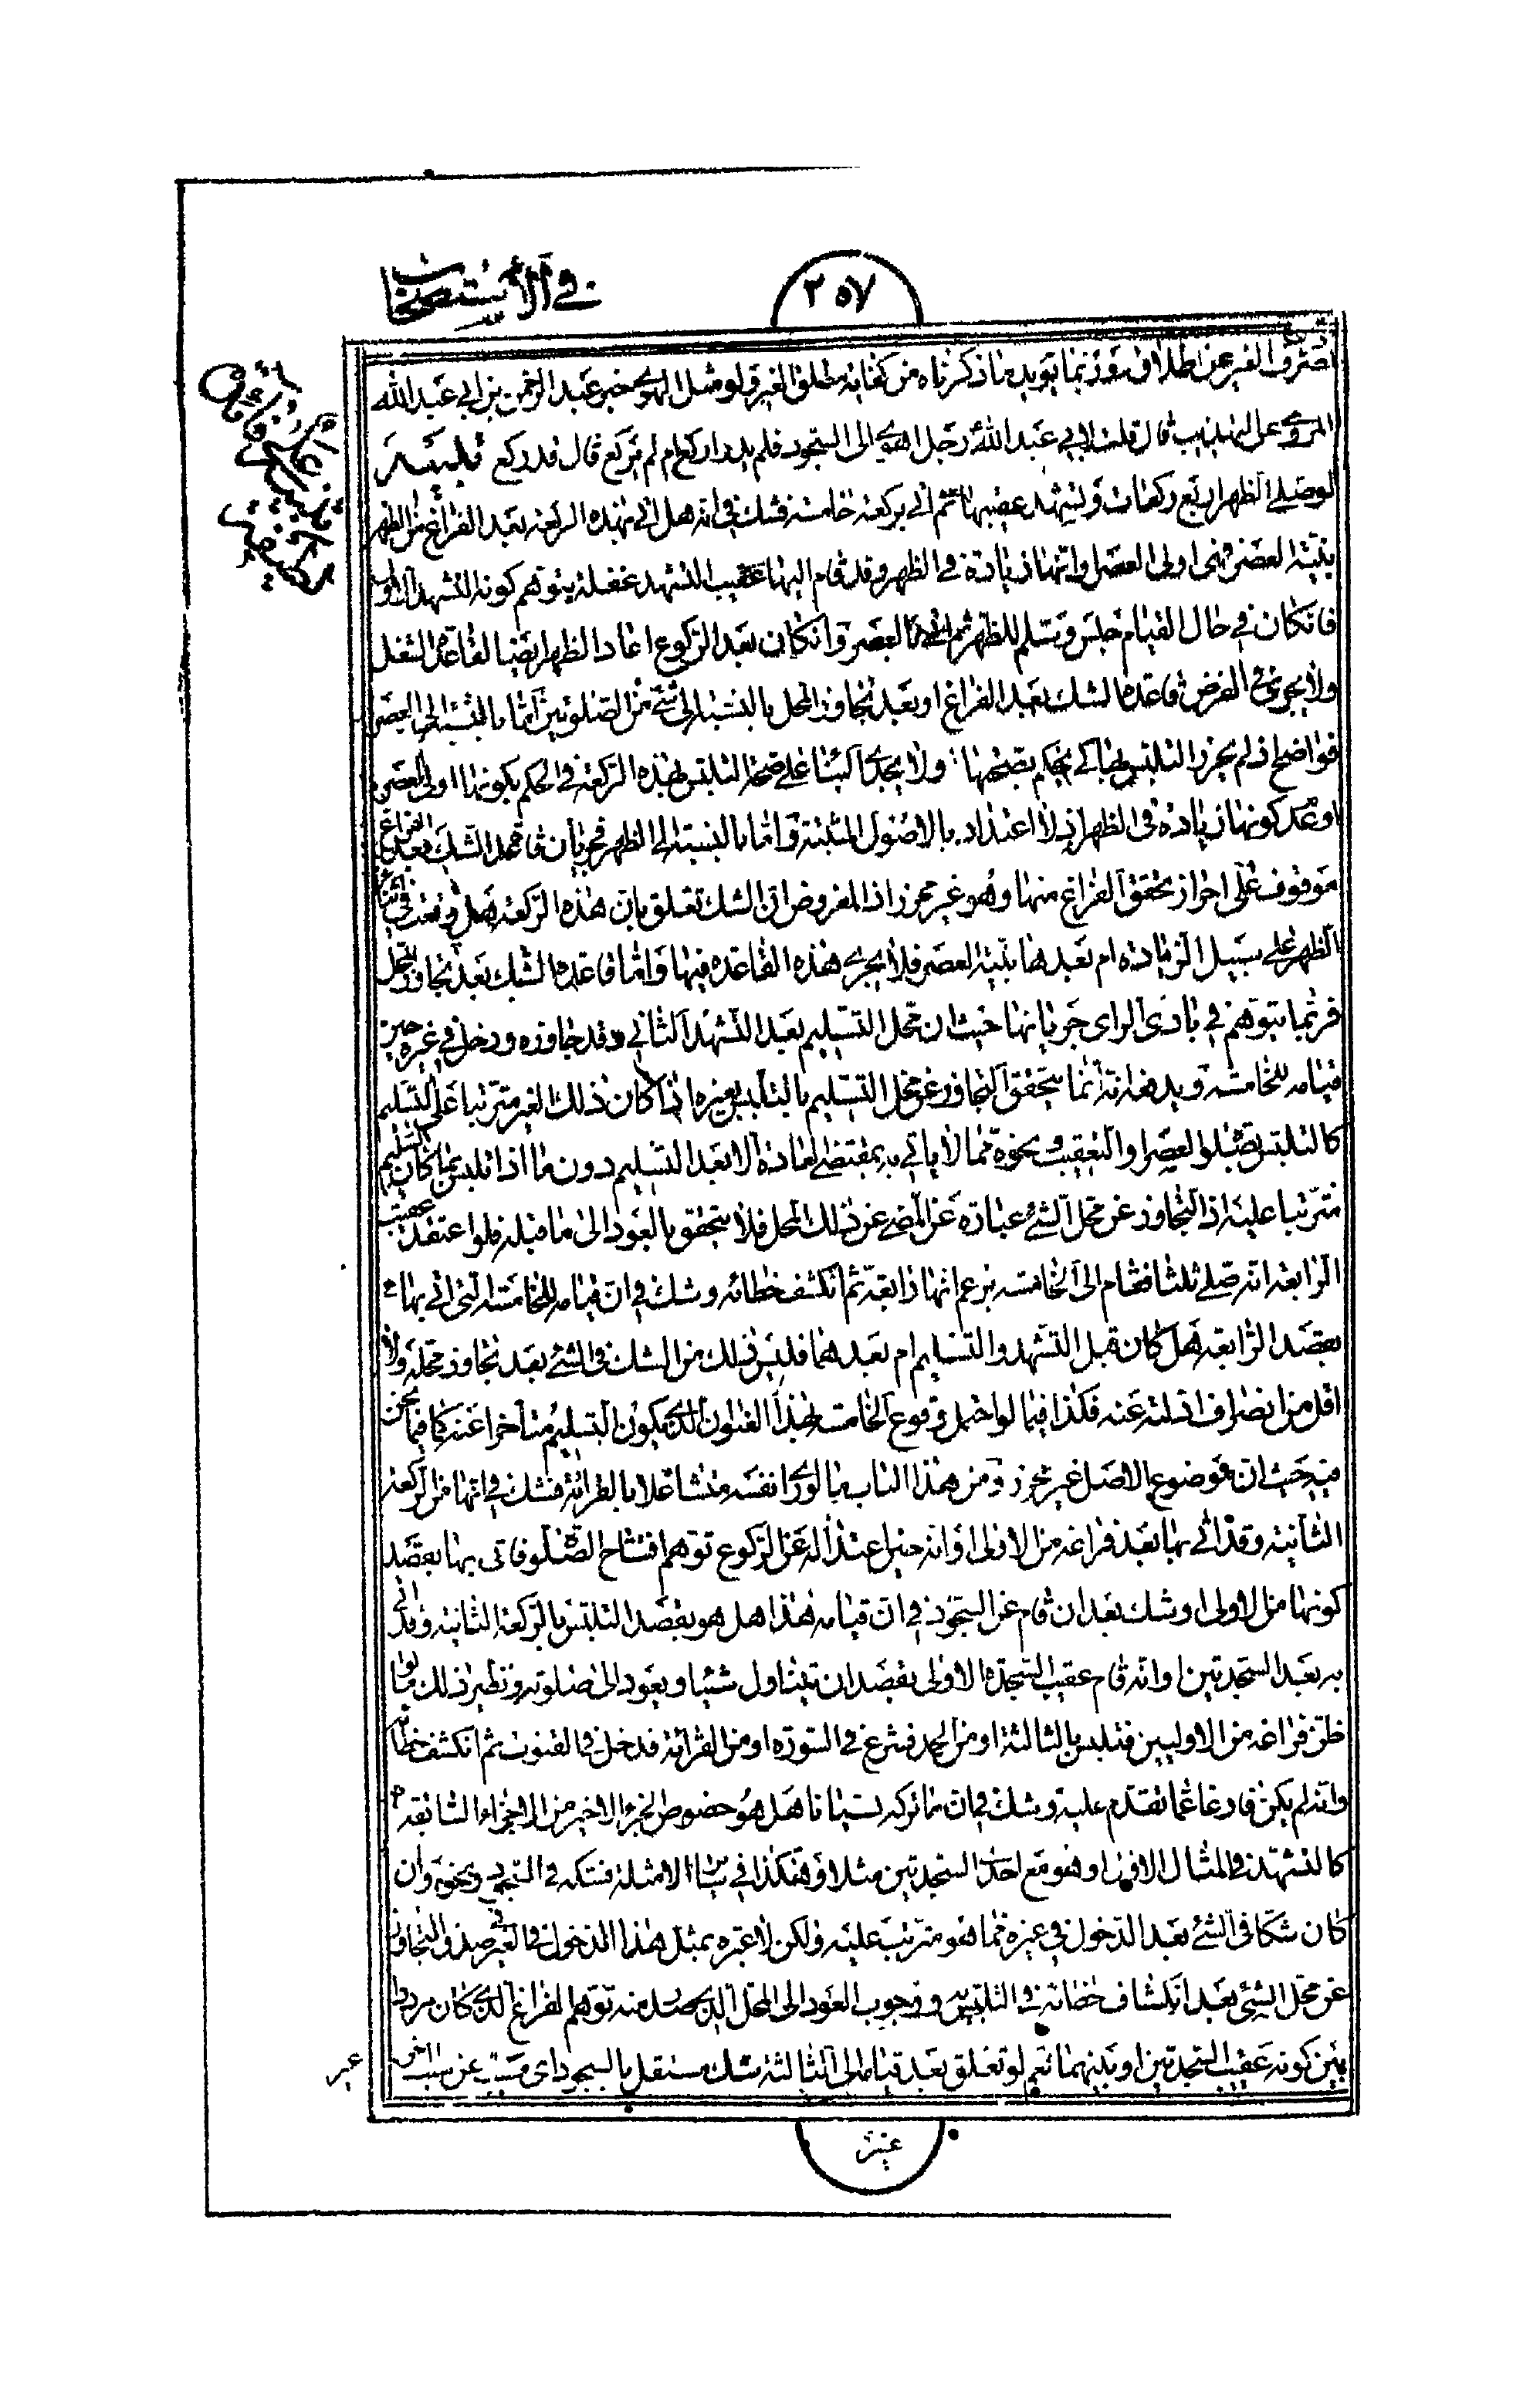 في الاستصحاب
٣٥٧
تصرف الغير عن اطلاقه وربما يؤيد ما ذكرناه من كفاية مطلق الغير ولو مثل الهوي خبر عبد الرحمن بن ابي عبد الله
المروي عن التهذيب قال قلت لابي عبد الله رجل اهوى الى السجود فلم يدر اركع ام لم يركع قال قد ركع
لو صلى الظهر اربع ركعات وتشهد عقيبها ثم اتى بركعة خامسة فشك في انه هل اتى بهذه الركعة بعد الفراغ من الظهر
بنية العصر فهي اولى العصر او انها زيادة في الظهر وقد قام اليها عقيب التشهد غفلة بتوهم كونه التشهد الاول
فان كان في حال القيام جلس وسلم للظهر ثم العصر وان كان بعد الركوع اعاد الظهر ايضا لقاعدة الشغل
ولا يجري في الفرض قاعدة الشك بعد الفراغ او بعد تجاوز المحل بالنسبة الى شيء من الصلوتين اما بالنسبة الى العصر
فواضح اذ لم يحرز التلبس بها كي يحكم بصحتها ولا يجدي البناء على صحة التلبس بهذه الركعة في الحكم بكونها اولى العصر
او عدم كونها زيادة في الظهر اذ لا اعتداد بالاصول المثبتة واما بالنسبة الى الظهر فجريان قاعدة الشك بعد الفراغ
موقوف على احراز تحقق الفراغ منها وهو غير محرز اذ المفروض ان الشك تعلق بان هذه الركعة هل وقعت في اثناء
الظهر على سبيل الزيادة ام بعدها بنية العصر فلا يجري هذه القاعدة فيها واما قاعدة الشك بعد تجاوز المحل
فربما يتوهم في بادى الراى جريانها حيث ان محل التسليم بعد التشهد الثاني وقد جاوزه ودخل في غيره حين
قيامه للخامسة ويدفعه انه انما يتحقق التجاوز عن محل التسليم بالتلبس بغيره اذا كان ذلك الغير مترتبا على التسليم
كالتلبس بصلوة العصر او التعقيب ونحوه مما لا ياتي به بمقتضى العادة الا بعد التسليم دون ما اذا تلبس بما كان التسليم
مترتبا عليه اذ التجاوز عن محل الشيء عبارة عن المضي عن ذلك المحل فلا يتحقق بالعود الى ما قبله فلو اعتقد عقيب
الرابعة انه صلى ثلثا فقام الى الخامسة بزعم انها رابعة ثم انكشف خطائه وشك في ان قيامه للخامسة التي اتى بها
بقصد الرابعة هل كان قبل التشهد والتسليم ام بعدهما فليس ذلك من الشك في الشيء بعد تجاوز محله ولا
اقل من انصراف ادلته عنه فكذا فيما لو احتمل وقوع الخامسة بهذا العنوان الذي يكون التسليم متاخرا عنه كما فيما نحن
فيه حيث ان موضوع الاصل غير محرز ومن هذا الباب ما لو راى نفسه متشاغلا بالقرائة فشك في انها من الركعة
الثانية وقد اتى بها بعد فراغه من الاولى او انه حين اعتداله عن الركوع توهم افتتاح الصلوة فاتى بها بقصد
كونها من الاولى او شك بعد ان قام عن السجود في ان قيامه هذا هل هو بقصد التلبس بالركعة الثانية وقد اتى
به بعد السجدتين او انه قام عقيب السجدة الاولى بقصد ان يتناول شيئا ويعود الى صلوته ونظير ذلك ما لو
ظن فراغه من الاوليين فتلبس بالثالثة او من الحمد فشرع في السورة او من القرائة فدخل في القنوت ثم انكشف خطائه
وانه لم يكن فارغا عما تقدم عليه وشك في ان ما تركه نسيانا هل هو خصوص الجزء الاخير من الاجزاء السابقة
كالتشهد في المثال الاول او هو مع احدى السجدتين مثلا وهكذا في سائر الامثلة فشكه في السجدة ونحوه وان
كان شكا في الشيء بعد الدخول في غيره مما هو مترتب عليه ولكن لا عبرة بمثل هذا الدخول في الغير في صدق التجاوز
عن محل الشيء بعد انكشاف خطائه في التلبس به ووجوب العود الى المحل الذي حصل منه توهم الفراغ الذي كان مرددا
بين كونه عقيب السجدتين او بينهما نعم لو تعلق بعد قيامه الى الثالثة شك مستقل بالسجود اى مسبب عن سبب اخر
غير